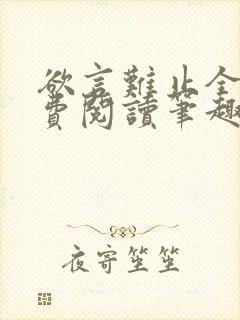 欲言難止全
費閱讀筆趣
夜寄笙笙